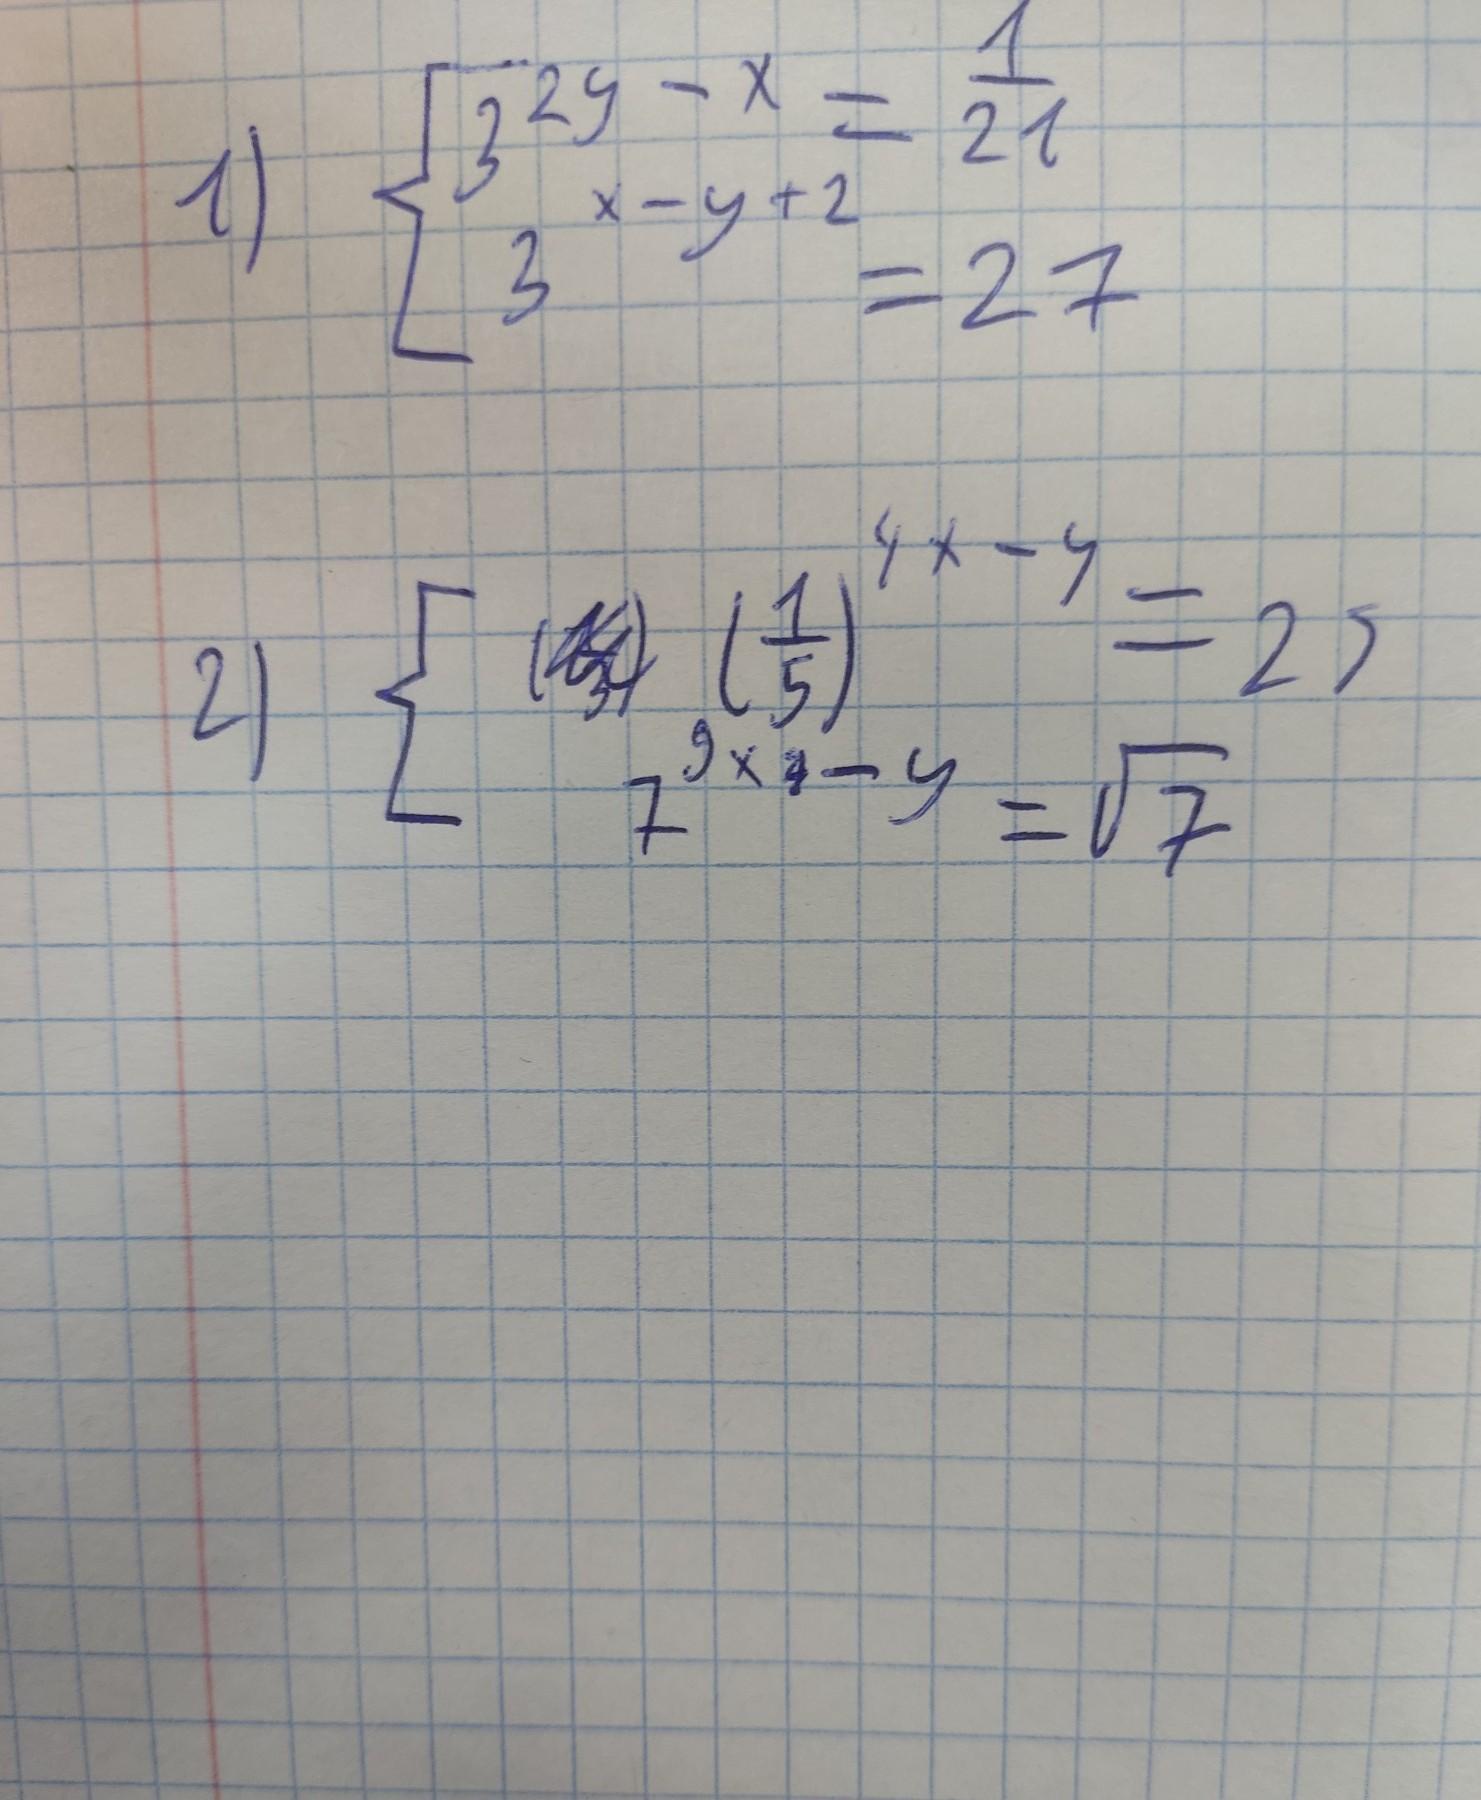 1) { 3^(2y - x) = 1/21
3^(x - y + 2) = 27
2) { (1/5)^(4x - y) = 25
7^(9x - y) = √7